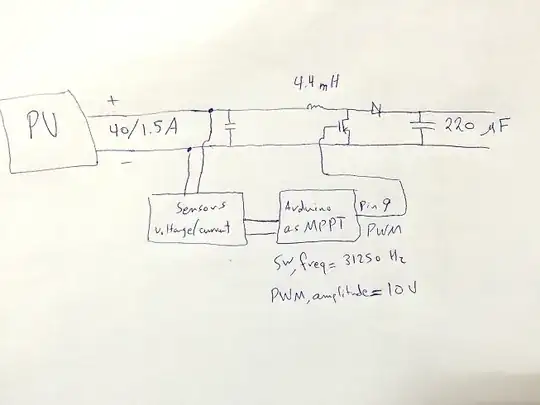 4.4 mH
+
PV
40/1.5A
220 µF
-
Sensors
voltage/current
Arduino
as MPPT
Pin 9
PWM
SW, freq = 31250 Hz
PWM, amplitude = 10V